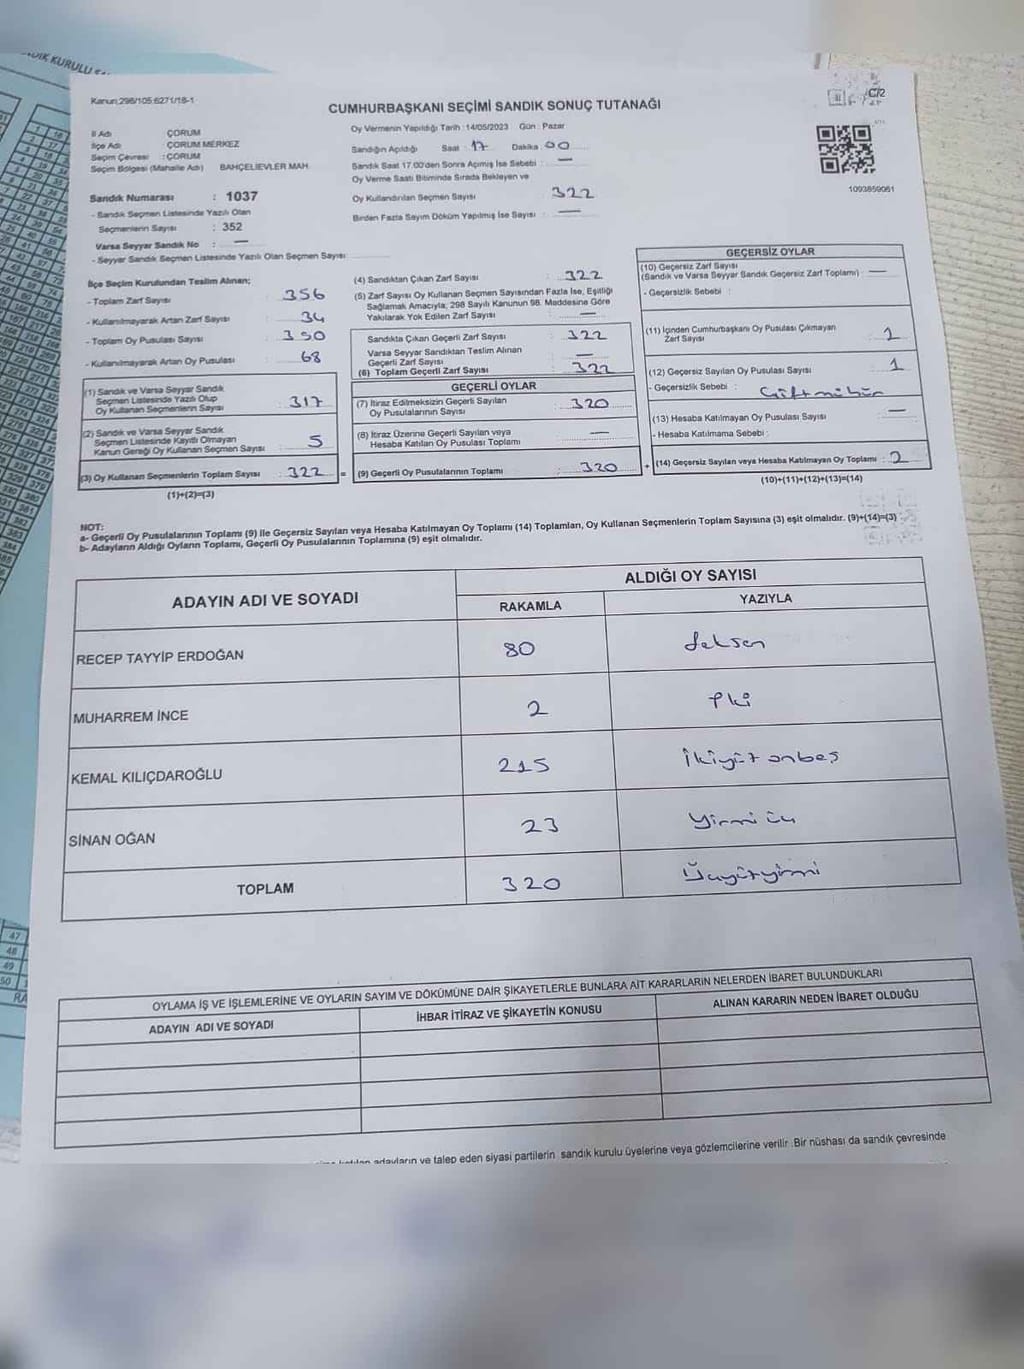 Kanun:298/105:6271/18-1
CUMHURBAŞKANI SEÇİMİ SANDIK SONUÇ TUTANAĞI
C/2
İl Adı ÇORUM
İlçe Adı ÇORUM MERKEZ
Seçim Çevresi : ÇORUM
Seçim Bölgesi (Mahalle Adı) BAHÇELİEVLER MAH.
Sandık Numarası : 1037
- Sandık Seçmen Listesinde Yazılı Olan
Seçmenlerin Sayısı : 352
Varsa Seyyar Sandık No : —
- Seyyar Sandık Seçmen Listesinde Yazılı Olan Seçmen Sayısı:
Oy Vermenin Yapıldığı Tarih :14/05/2023 Gün : Pazar
Sandığın Açıldığı Saat : 17 Dakika : 00
Sandık Saat 17.00'den Sonra Açılmış İse Sebebi : —
Oy Verme Saati Bitiminde Sırada Bekleyen ve
Oy Kullandırılan Seçmen Sayısı : 322
Birden Fazla Sayım Döküm Yapılmış İse Sayısı : —
1093859061
İlçe Seçim Kurulundan Teslim Alınan;
- Toplam Zarf Sayısı : 356
- Kullanılmayarak Artan Zarf Sayısı : 34
- Toplam Oy Pusulası Sayısı : 350
- Kullanılmayarak Artan Oy Pusulası : 68
(1) Sandık ve Varsa Seyyar Sandık
Seçmen Listesinde Yazılı Olup
Oy Kullanan Seçmenlerin Sayısı : 317
(2) Sandık ve Varsa Seyyar Sandık
Seçmen Listesinde Kayıtlı Olmayan
Kanun Gereği Oy Kullanan Seçmen Sayısı : 5
(3) Oy Kullanan Seçmenlerin Toplam Sayısı : 322 =
(1)+(2)=(3)
(4) Sandıktan Çıkan Zarf Sayısı : 322
(5) Zarf Sayısı Oy Kullanan Seçmen Sayısından Fazla İse, Eşitliği
Sağlamak Amacıyla; 298 Sayılı Kanunun 98. Maddesine Göre
Yakılarak Yok Edilen Zarf Sayısı : —
Sandıkta Çıkan Geçerli Zarf Sayısı : 322
Varsa Seyyar Sandıktan Teslim Alınan
Geçerli Zarf Sayısı : —
(6) Toplam Geçerli Zarf Sayısı : 322
GEÇERLİ OYLAR
(7) İtiraz Edilmeksizin Geçerli Sayılan
Oy Pusulalarının Sayısı : 320
(8) İtiraz Üzerine Geçerli Sayılan veya
Hesaba Katılan Oy Pusulası Toplamı : —
(9) Geçerli Oy Pusulalarının Toplamı : 320 +
GEÇERSİZ OYLAR
(10) Geçersiz Zarf Sayısı
(Sandık ve Varsa Seyyar Sandık Geçersiz Zarf Toplamı) : —
- Geçersizlik Sebebi :
(11) İçinden Cumhurbaşkanı Oy Pusulası Çıkmayan
Zarf Sayısı : 1
(12) Geçersiz Sayılan Oy Pusulası Sayısı : 1
- Geçersizlik Sebebi : Çift mühür
(13) Hesaba Katılmayan Oy Pusulası Sayısı : —
- Hesaba Katılmama Sebebi :
(14) Geçersiz Sayılan veya Hesaba Katılmayan Oy Toplamı : 2
(10)+(11)+(12)+(13)=(14)
NOT:
a- Geçerli Oy Pusulalarının Toplamı (9) ile Geçersiz Sayılan veya Hesaba Katılmayan Oy Toplamı (14) Toplamları, Oy Kullanan Seçmenlerin Toplam Sayısına (3) eşit olmalıdır. (9)+(14)=(3)
b- Adayların Aldığı Oyların Toplamı, Geçerli Oy Pusulalarının Toplamına (9) eşit olmalıdır.
ADAYIN ADI VE SOYADI ALDIĞI OY SAYISI
RAKAMLA YAZIYLA
RECEP TAYYİP ERDOĞAN 80 seksen
MUHARREM İNCE 2 İki
KEMAL KILIÇDAROĞLU 215 ikiyüz onbeş
SİNAN OĞAN 23 Yirmi üç
TOPLAM 320 Üçyüzyirmi
OYLAMA İŞ VE İŞLEMLERİNE VE OYLARIN SAYIM VE DÖKÜMÜNE DAİR ŞİKAYETLERLE BUNLARA AİT KARARLARIN NELERDEN İBARET BULUNDUKLARI
ADAYIN ADI VE SOYADI İHBAR İTİRAZ VE ŞİKAYETİN KONUSU ALINAN KARARIN NEDEN İBARET OLDUĞU
adayların ve talep eden siyasi partilerin sandık kurulu üyelerine veya gözlemcilerine verilir .Bir nüshası da sandık çevresinde